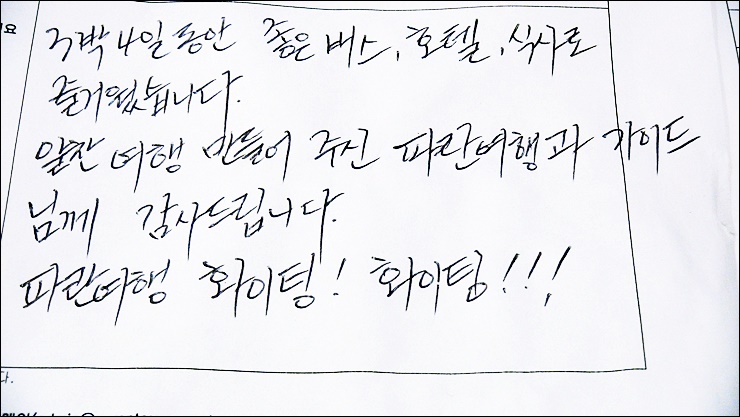 3박 4일 동안 좋은 버스, 호텔, 식사로
즐거웠습니다.
알찬 여행 만들어 주신 파란여행과 가이드
님께 감사드립니다.
파란여행 화이팅! 화이팅!!!